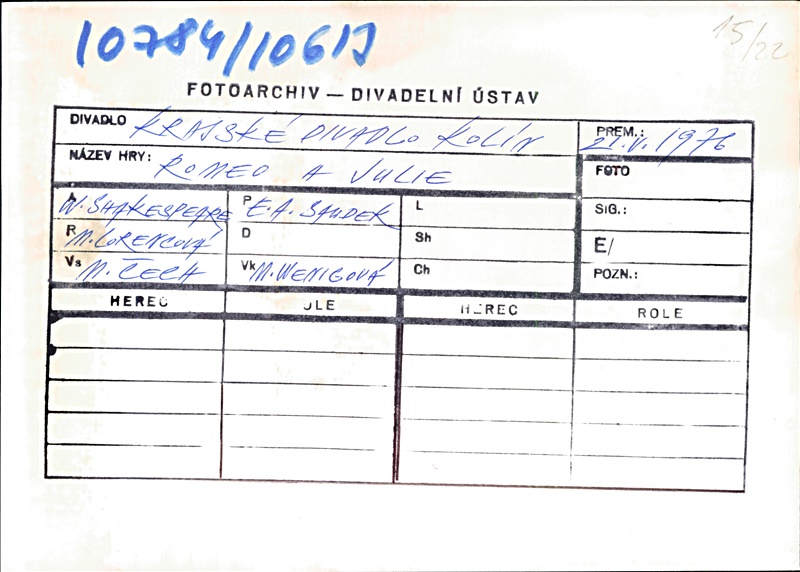 10784/1061J
15/22
FOTOARCHIV — DIVADELNÍ ÚSTAV
DIVADLO KRAJSKÉ DIVADLO KOLÍN
PREM.: 21.V.1976
NÁZEV HRY: ROMEO A JULIE
FOTO
A W. SHAKESPEARE P E.A. SAUDEK L SIG.:
R M. LORENCOVÁ D Sh E/
Vs M. ČECH Vk M. WENIGOVÁ Ch POZN.:
HEREC ULE HEREC ROLE